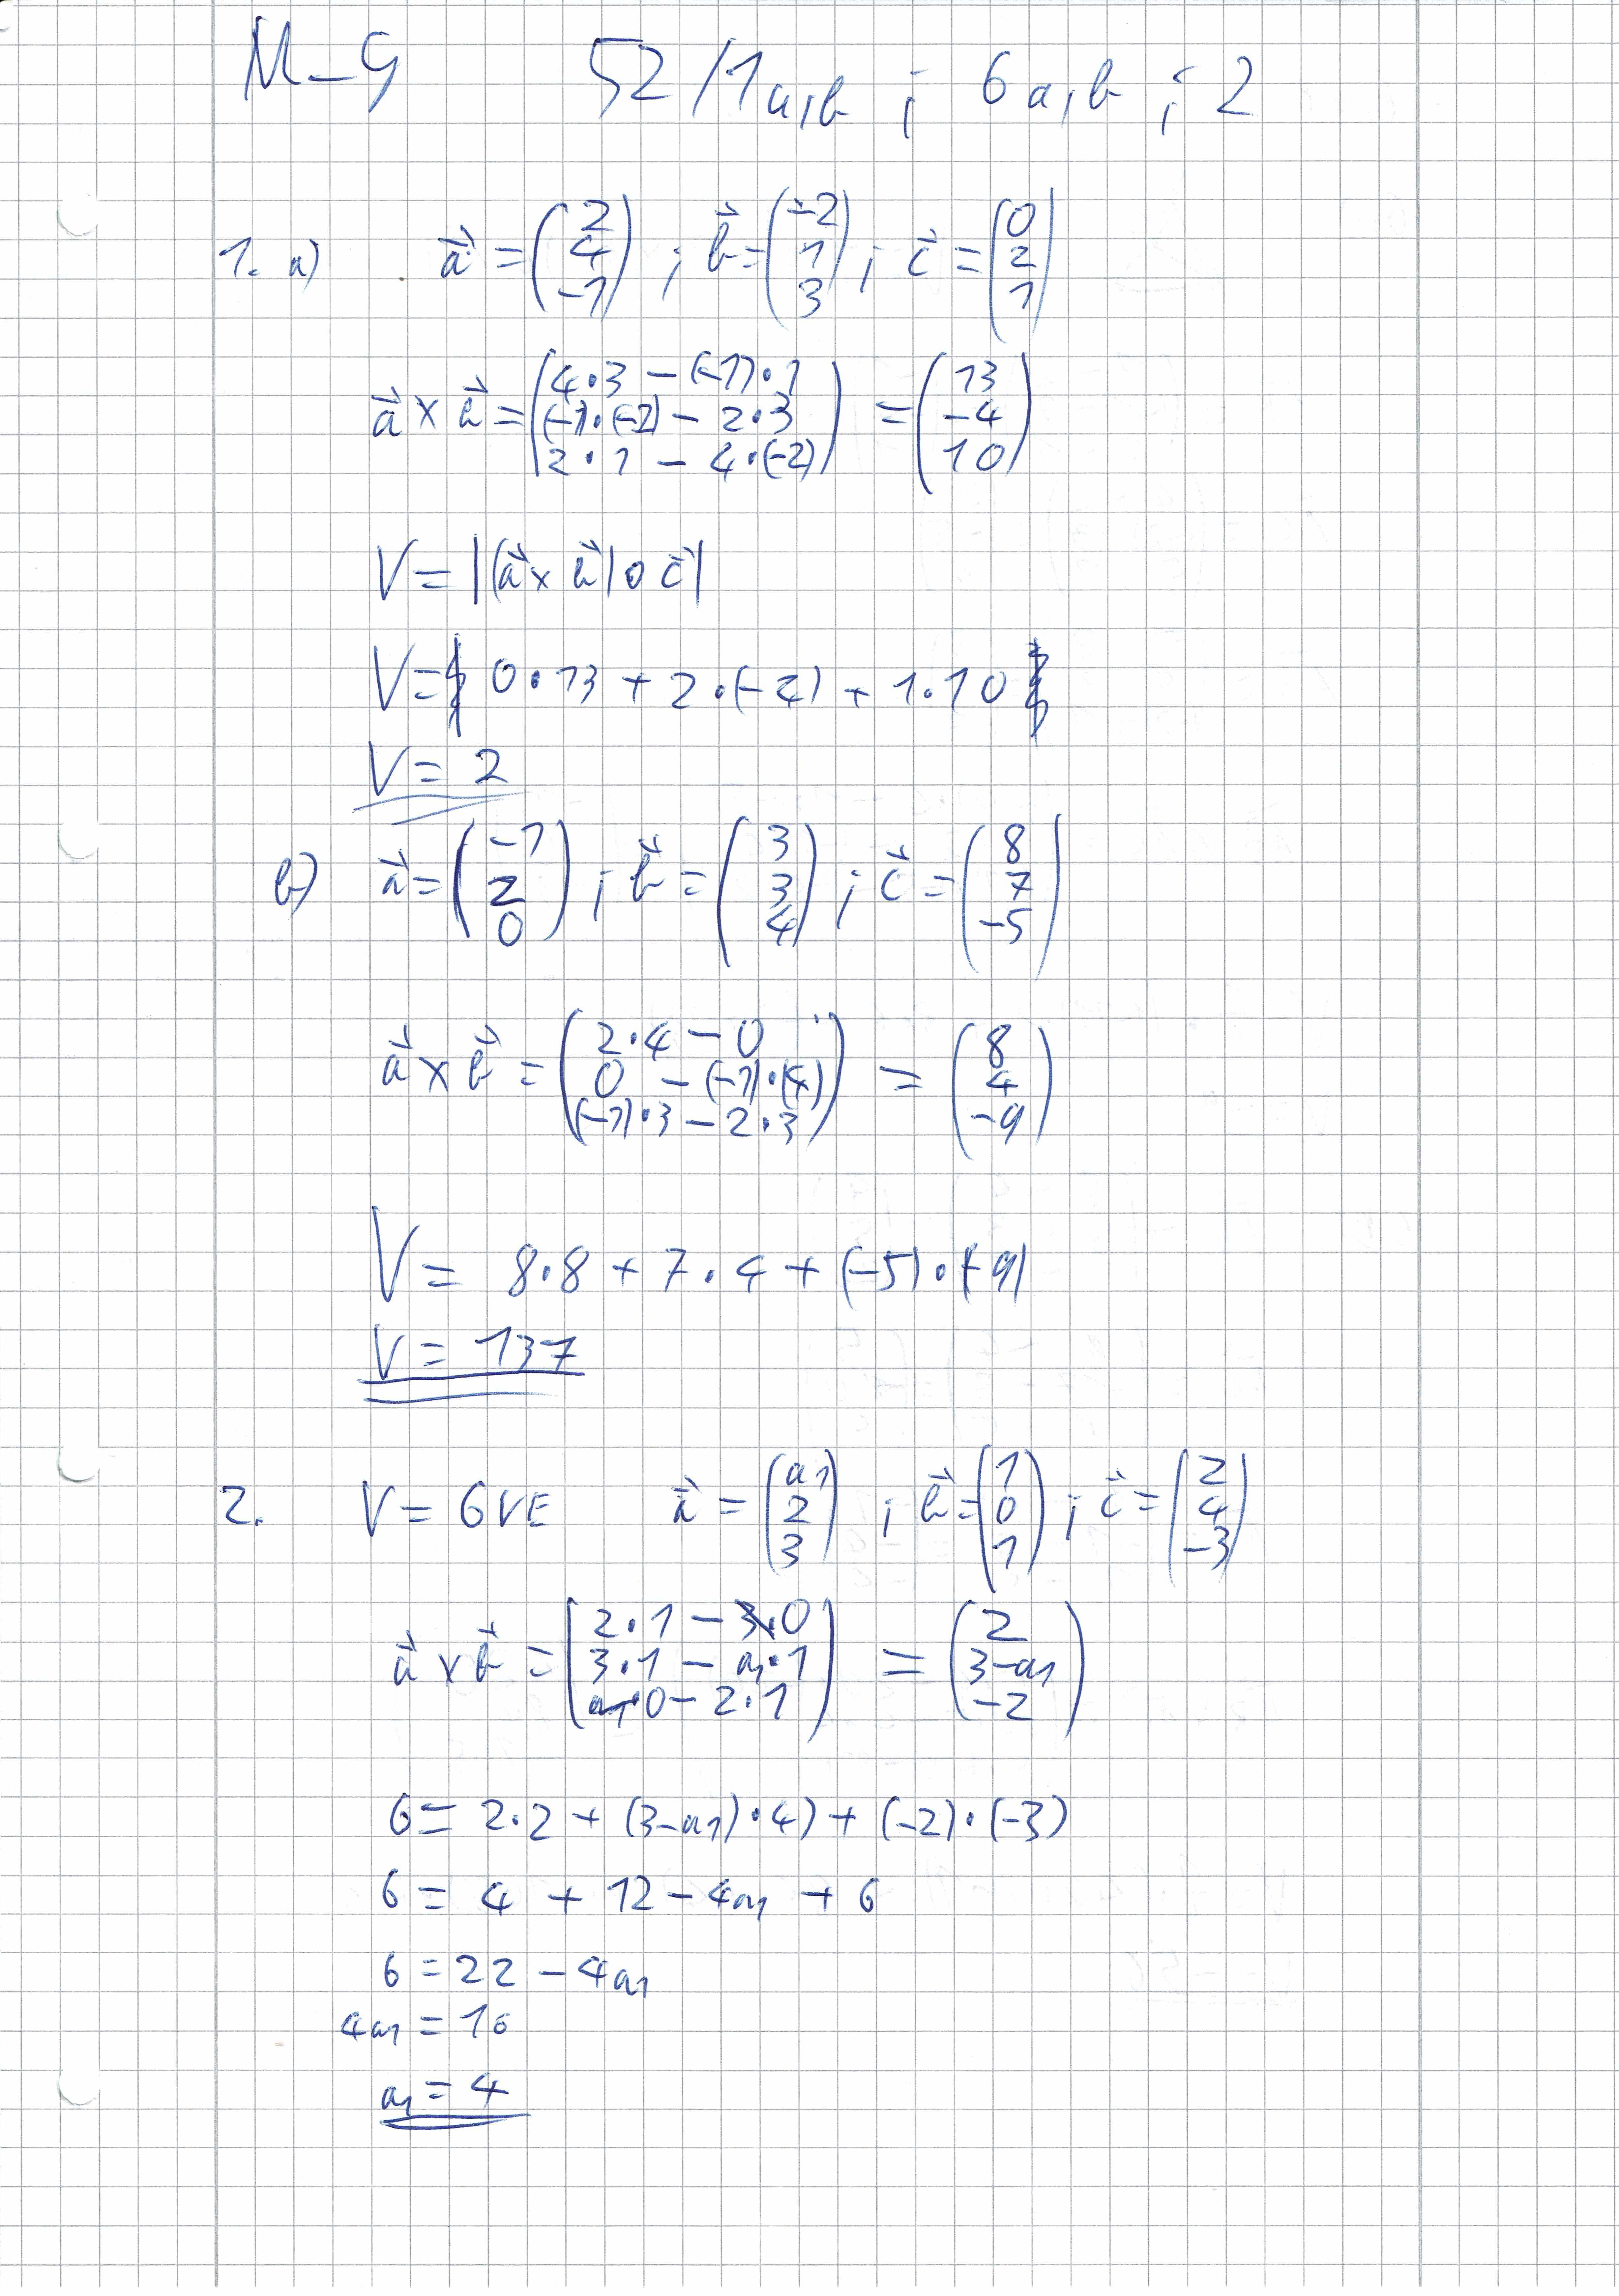 M-G 52/1a,b ; 6a,b ; 2
1. a) a⃗ = (2 4 -1) ; b⃗ = (-2 1 3) ; c⃗ = (0 2 1)
a⃗ × b⃗ = (4·3 - (-1)·1 (-1)·(-2) - 2·3 2·1 - 4·(-2)) = (13 -4 10)
V = |(a⃗ × b⃗) ∘ c⃗|
V = 0·13 + 2·(-4) + 1·10
V = 2
b) a⃗ = (-1 2 0) ; b⃗ = (3 3 4) ; c⃗ = (8 7 -5)
a⃗ × b⃗ = (2·4 - 0 0 - (-1)·(4) (-1)·3 - 2·3) = (8 4 -9)
V = 8·8 + 7·4 + (-5)·(-9)
V = 137
2. V = 6VE a⃗ = (a₁ 2 3) ; b⃗ = (1 0 1) ; c⃗ = (2 4 -3)
a⃗ × b⃗ = (2·1 - 3·0 3·1 - a₁·1 a₁·0 - 2·1) = (2 3-a₁ -2)
6 = 2·2 + (3-a₁)·4) + (-2)·(-3)
6 = 4 + 12 - 4a₁ + 6
6 = 22 - 4a₁
4a₁ = 16
a₁ = 4